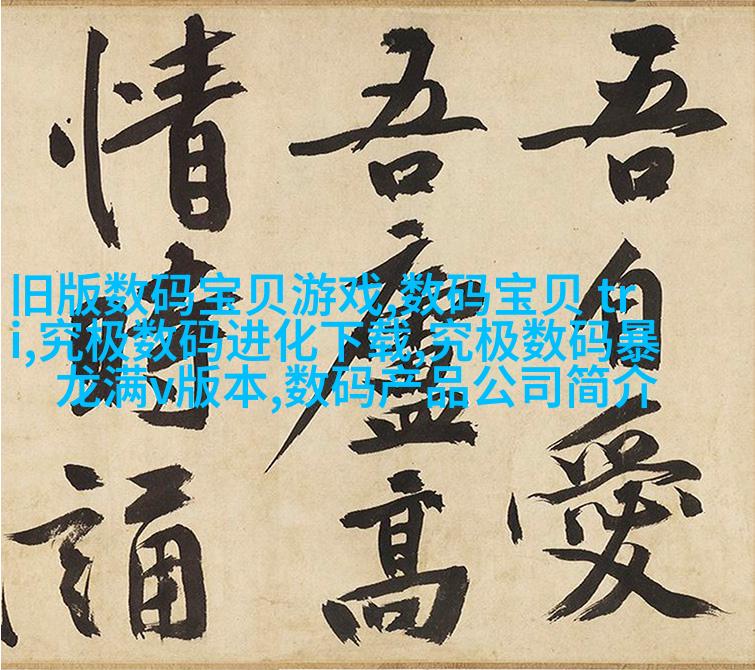 旧版数码宝贝游戏,数码宝贝 tr
i,究极数码进化下载,究极数码暴
龙满v版本,数码产品公司简介
吾自愛
吾廬高
情誦